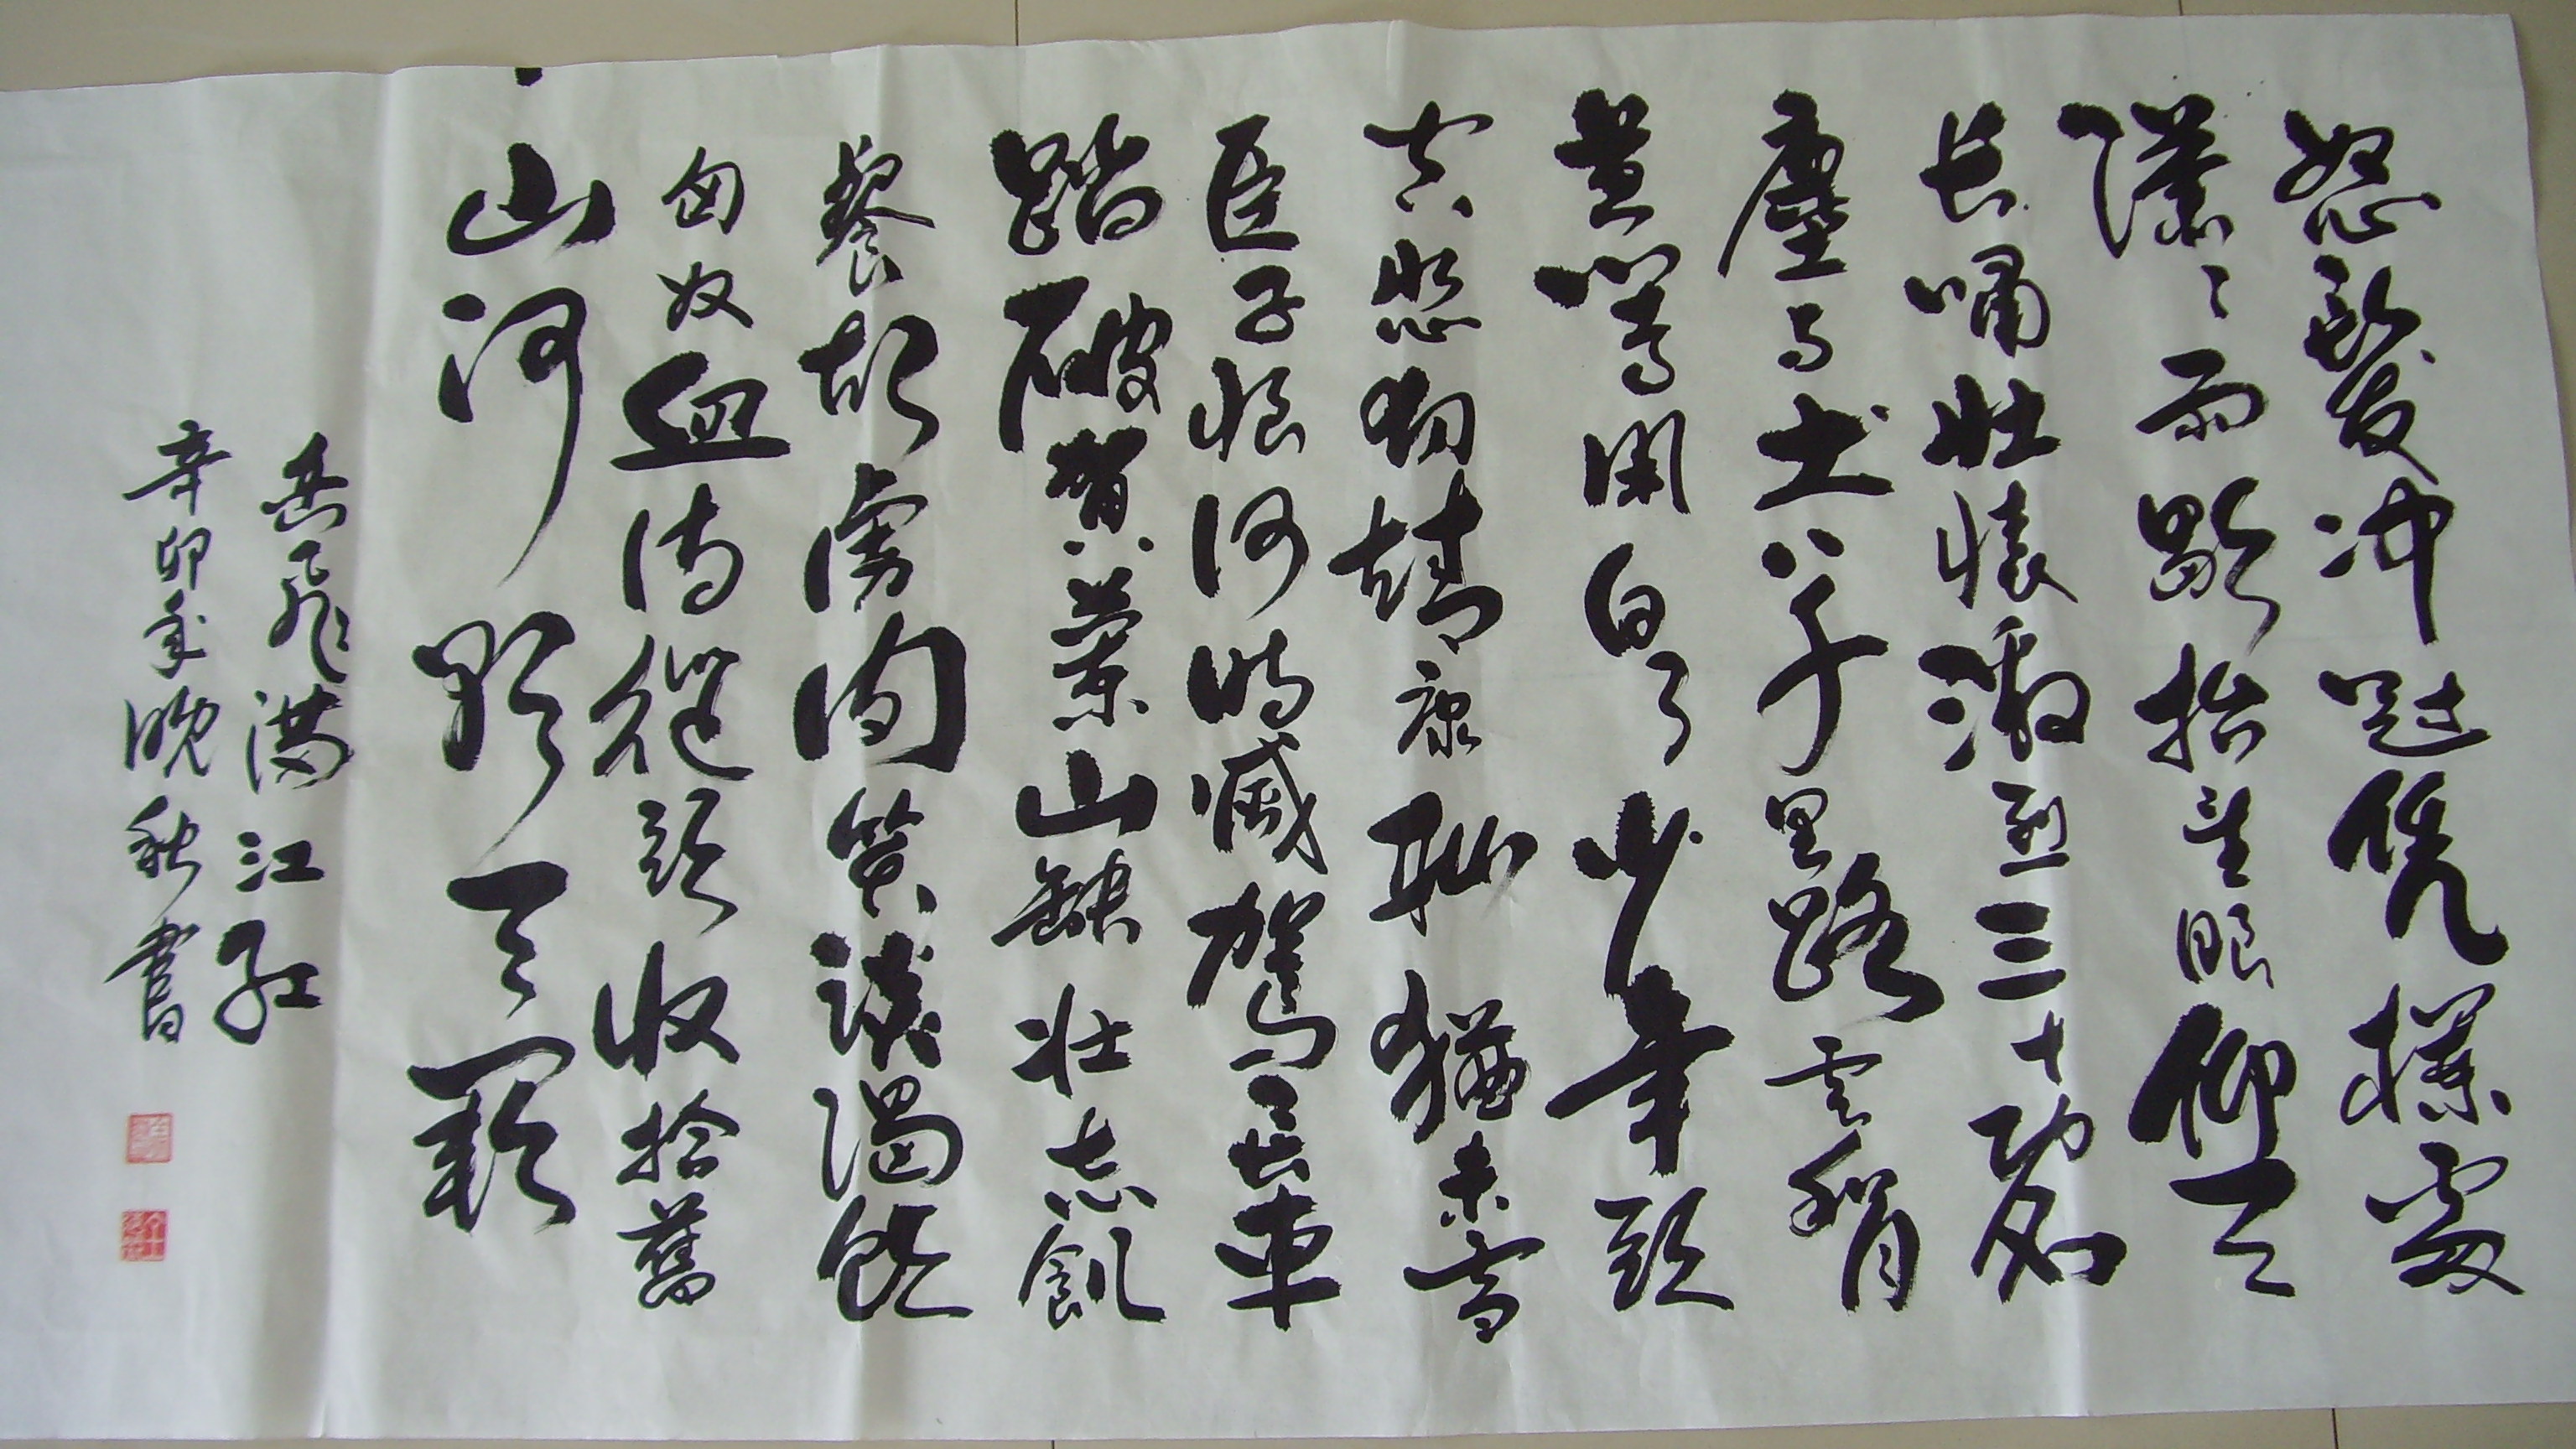 怒髮冲冠凭欄處
瀟々雨歇抬望眼仰天
長嘯壯懷激烈三十功名
塵与土八千里路雲和月
莫等閑白了少年頭
空悲切靖康恥猶未雪
臣子恨何時滅駕長車
踏破賀蘭山缺壯志飢
餐胡虜肉笑談渴飲
匈奴血待從頭收拾舊
山河朝天闕
岳飛滿江紅
辛卯年晚秋書